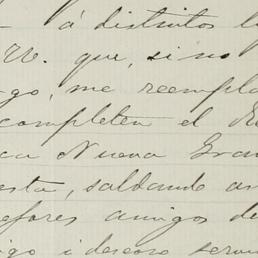 á distintos l
W. que, si no
go, me reempla
completen el R
ca Nueva Gran
esta, saldando an
efores amigos de
igo i deseoso serv